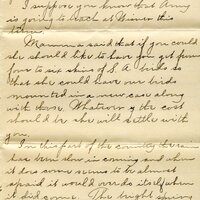 I suppose you know that Amy
is going to teach at Winser this
time.
Mamma said that if you could
she should like to have you get from
four to six skins of S.A. birds so
that she could have our birds
mounted in a new case along
with these. Whatever the cost
should be she will settle with
you.
In this part of the country the rain
has been slow in coming and when
it does come seems to be almost
afraid it would overdo itself when
it did come. The bright spring